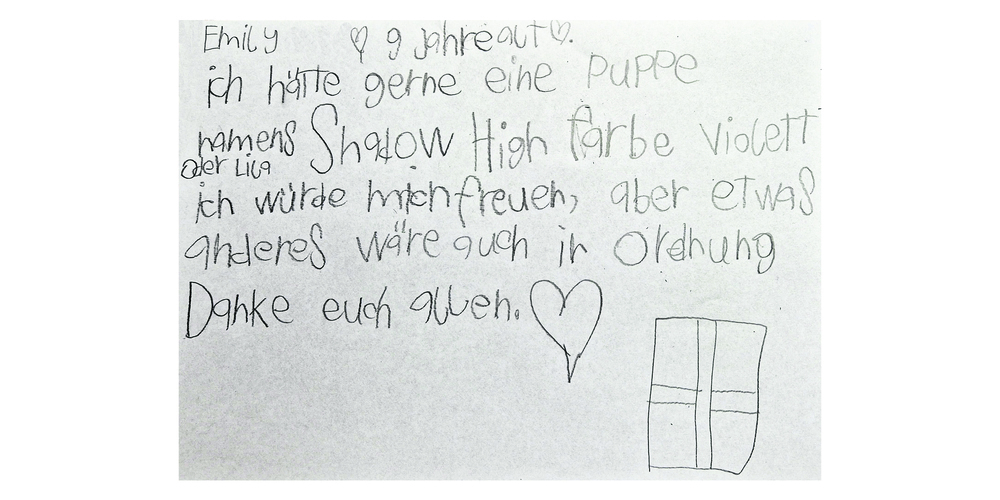 Emily ♡ 9 Jahre alt ♡.
ich hätte gerne eine PUPPe
namens Shadow High farbe violett
oder Lila
ich würde mich freuen, aber etwas
anderes wäre auch in Ordnung
Danke euch allen. ♡